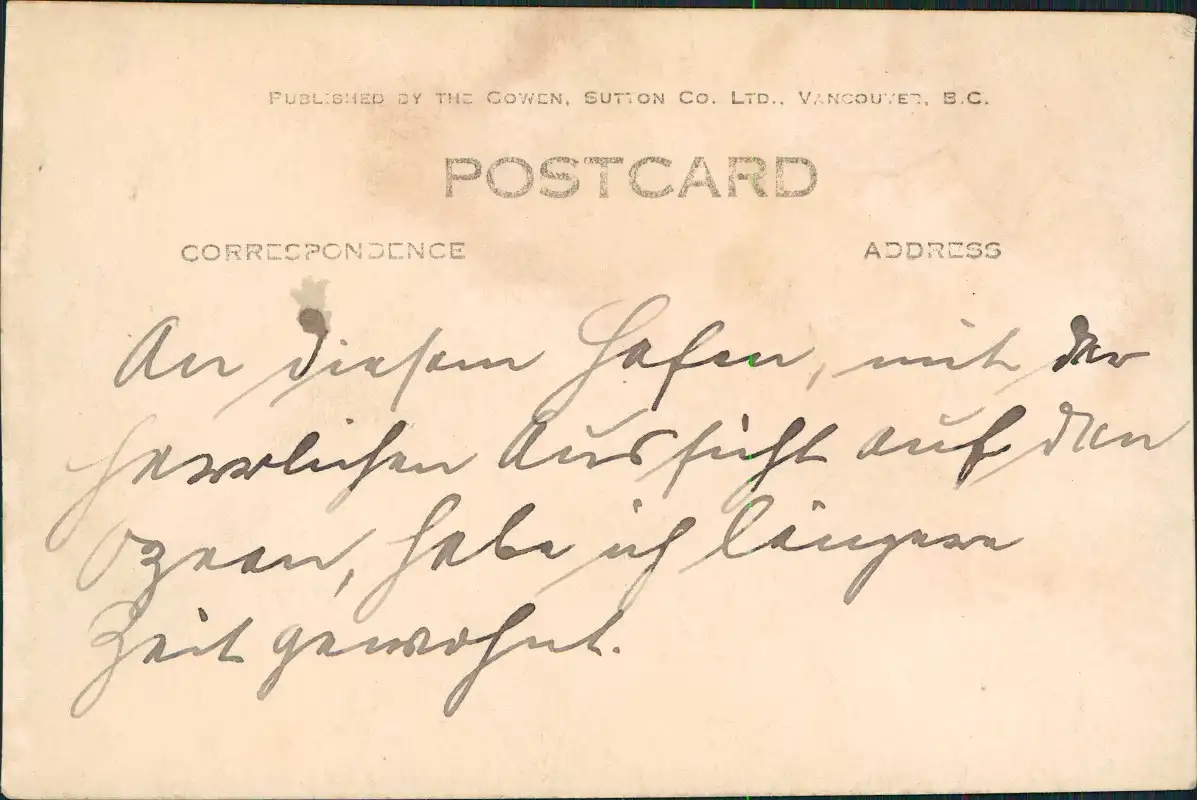 PUBLISHED BY THE GOWEN, SUTTON CO. LTD., VANCOUVER, B.C.
POSTCARD
CORRESPONDENCE
ADDRESS
An diesem Hafen, mit der
herrlichen Aussicht auf den
Ozean, habe ich längere
Zeit gewohnt.